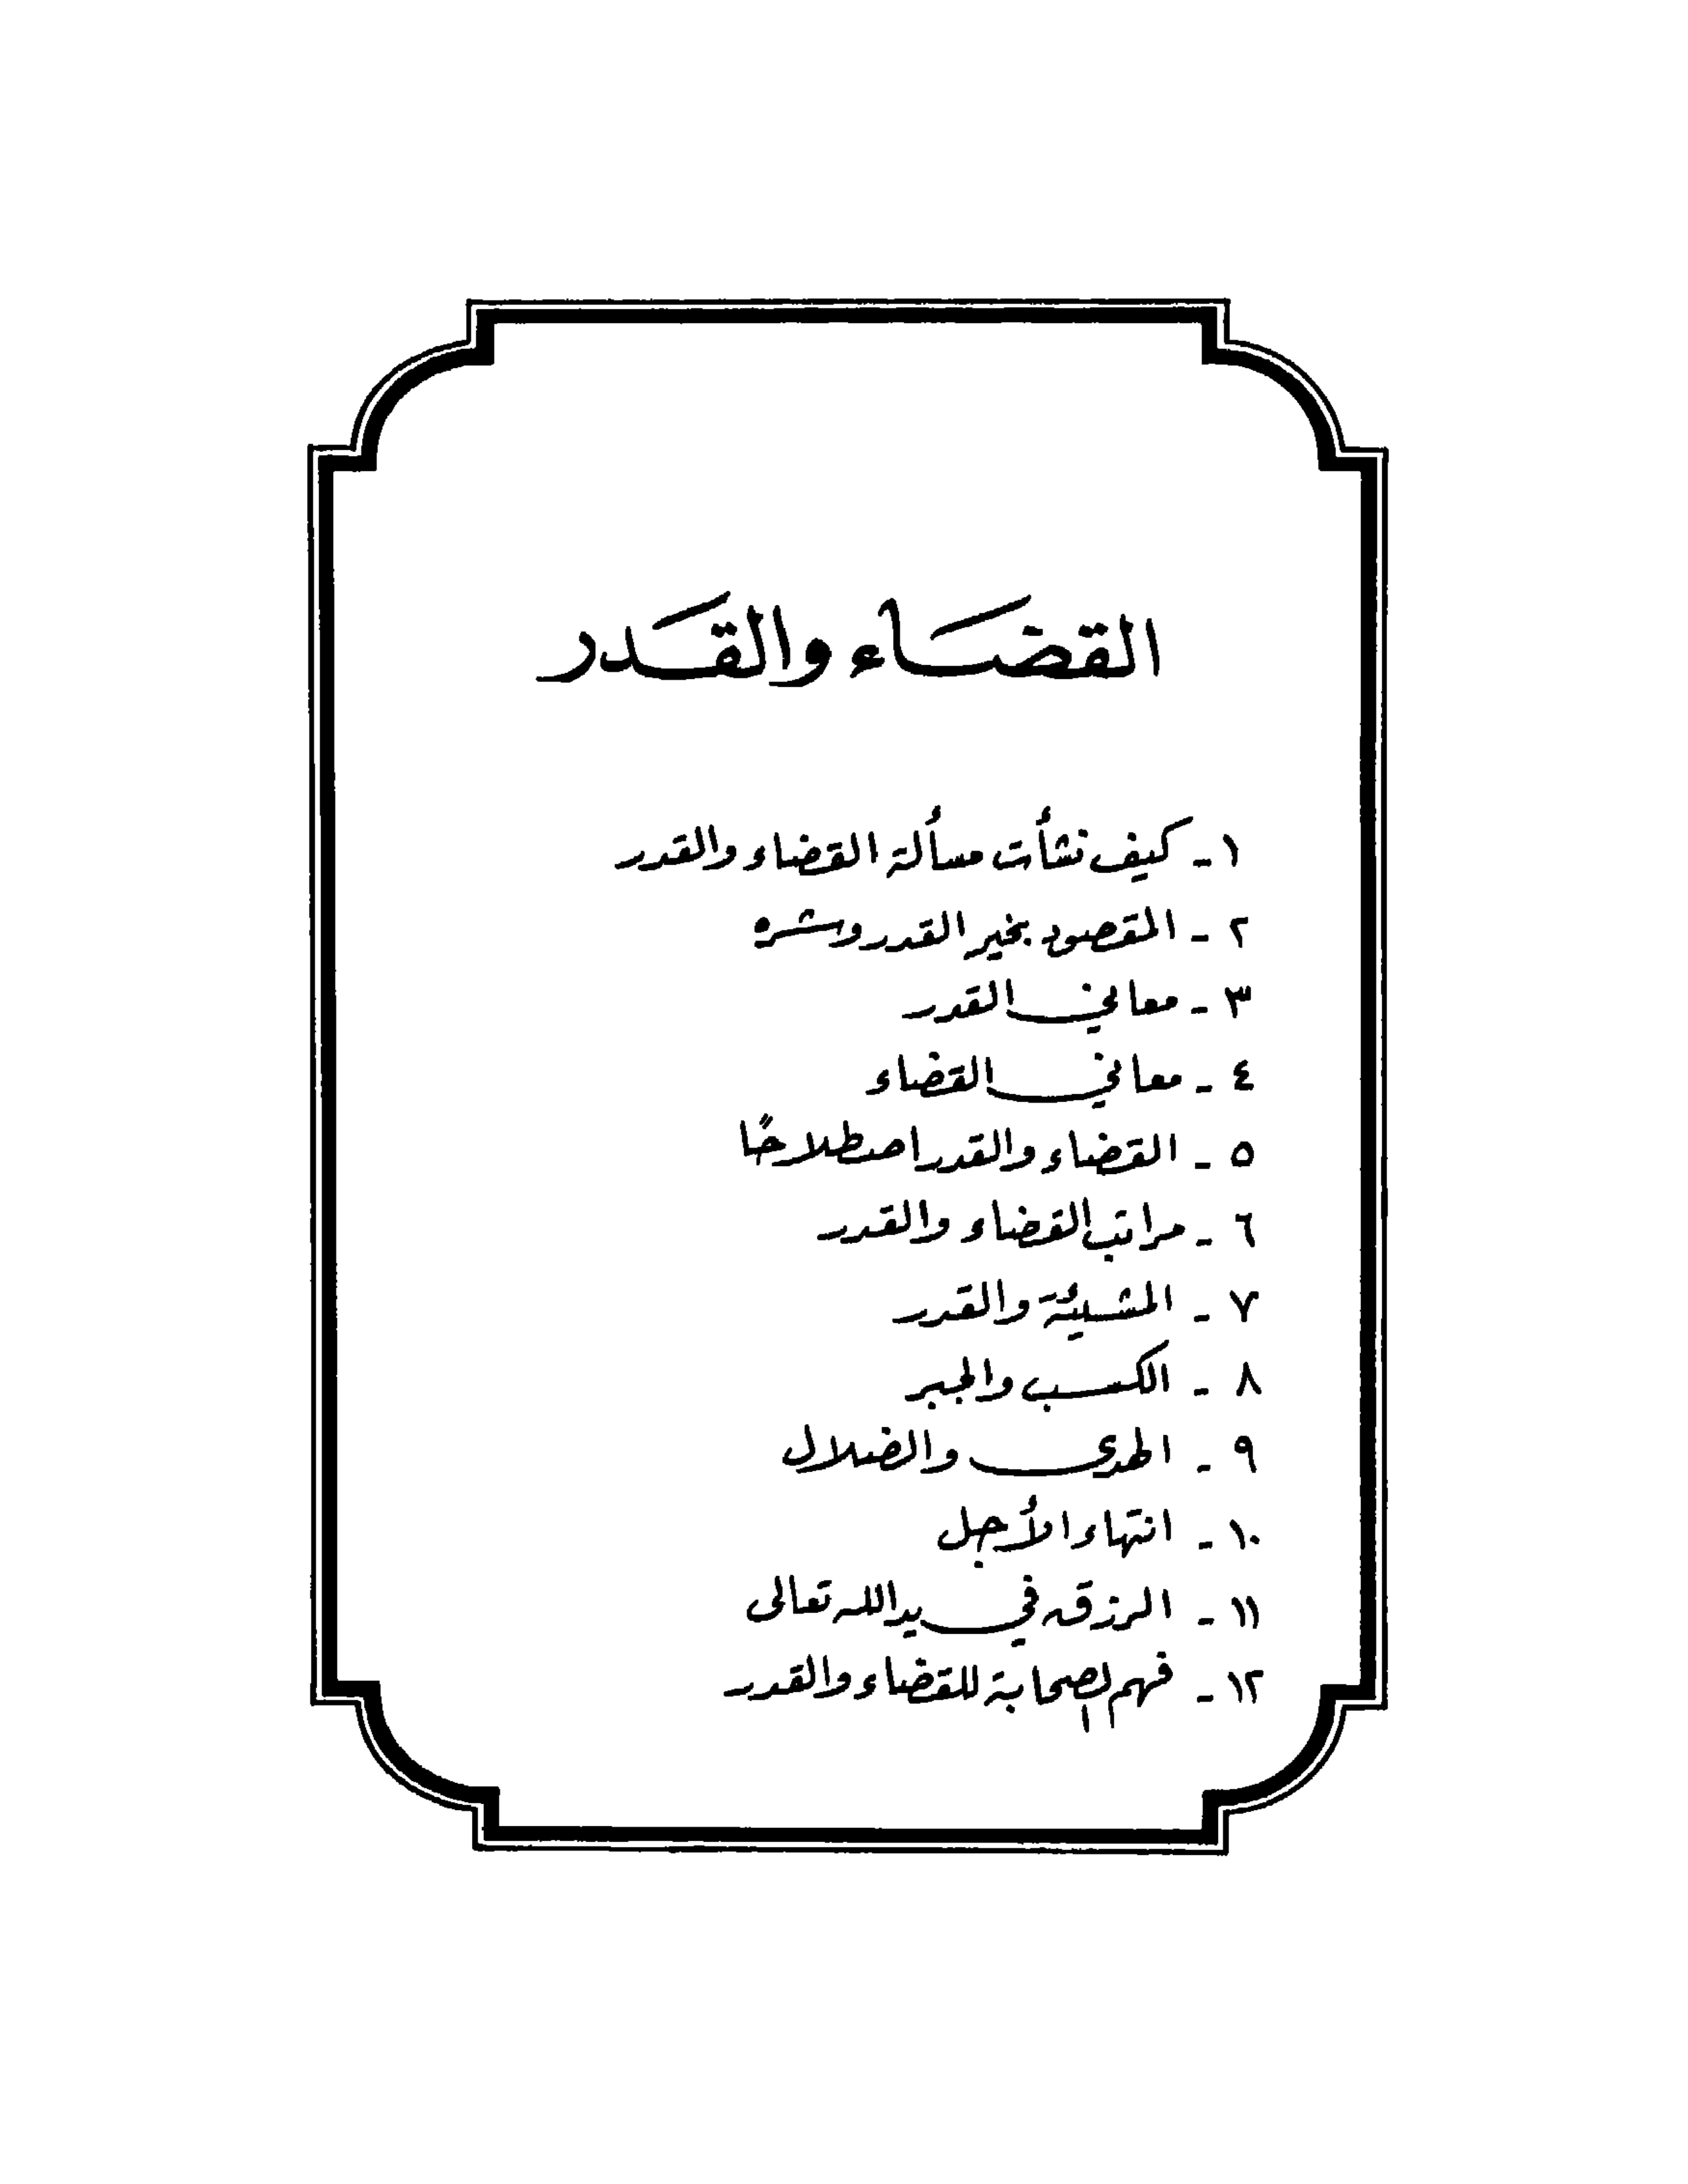 القضاء والقدر
١ - كيف نشأت مسألة القضاء والقدر
٢ - المقصود بخير القدر وشره
٣ - معاني القدر
٤ - معاني القضاء
٥ - القضاء والقدر اصطلاحًا
٦ - مراتب القضاء والقدر
٧ - المشيئة والقدر
٨ - الكسب والجبر
٩ - الهدى والضلال
١٠ - انتهاء الأجل
١١ - الرزق في يد الله تعالى
١٢ - فهم الصحابة للقضاء والقدر